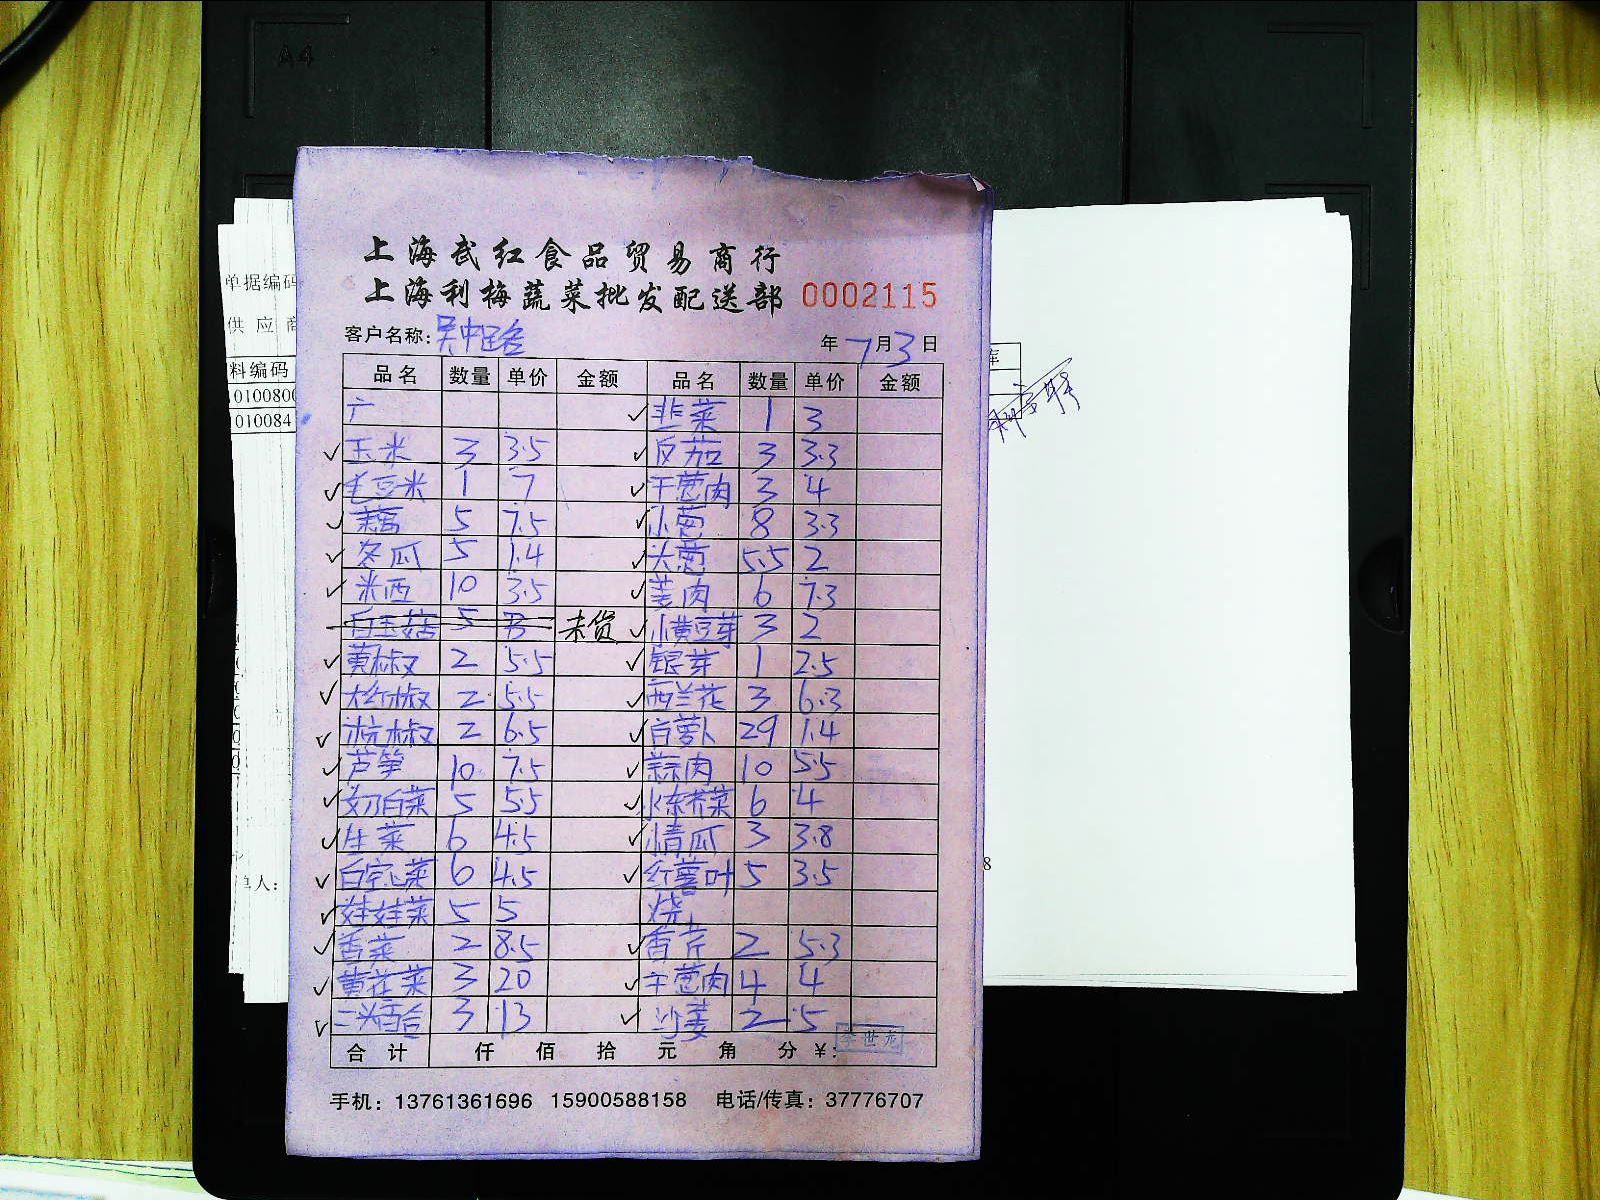 A4
上海武红食品贸易商行
上海利梅蔬菜批发配送部 0002115
客户名称: 吴中路 年 7月3日
品名 数量 单价 金额 品名 数量 单价 金额
亠 ✓韭菜 1 3
✓玉米 3 3.5 ✓反茄 3 3.3
✓毛豆米 1 7 ✓干葱肉 3 4
✓藕 5 7.5 ✓小葱 8 3.3
✓冬瓜 5 1.4 ✓大葱 5.5 2
✓米西 10 3.5 ✓姜肉 6 7.3
白玉菇 5 未货 ✓小黄豆芽 3 2
✓黄椒 2 5.5 ✓银芽 1 2.5
✓大红椒 2 5.5 ✓西兰花 3 6.3
✓杭椒 2 6.5 ✓白萝卜 29 1.4
✓芦笋 10 7.5 ✓蒜肉 10 5.5
✓奶白菜 5 5.5 ✓水东芥菜 6 4
✓生菜 6 4.5 ✓青瓜 3 3.8
✓白空心菜 6 4.5 ✓红薯叶 5 3.5
✓娃娃菜 5 5 烧
✓香菜 2 8.5 ✓香芹 2 5.3
✓黄花菜 3 20 干葱肉 4 4
✓二头百合 3 13 ✓沙姜 2 5
合计 仟 佰 拾 元 角 分 ¥: 李世龙
手机: 13761361696 15900588158 电话/传真: 37776707
单据编码
供应商
料编码
0100800
010084
单人:
库
8